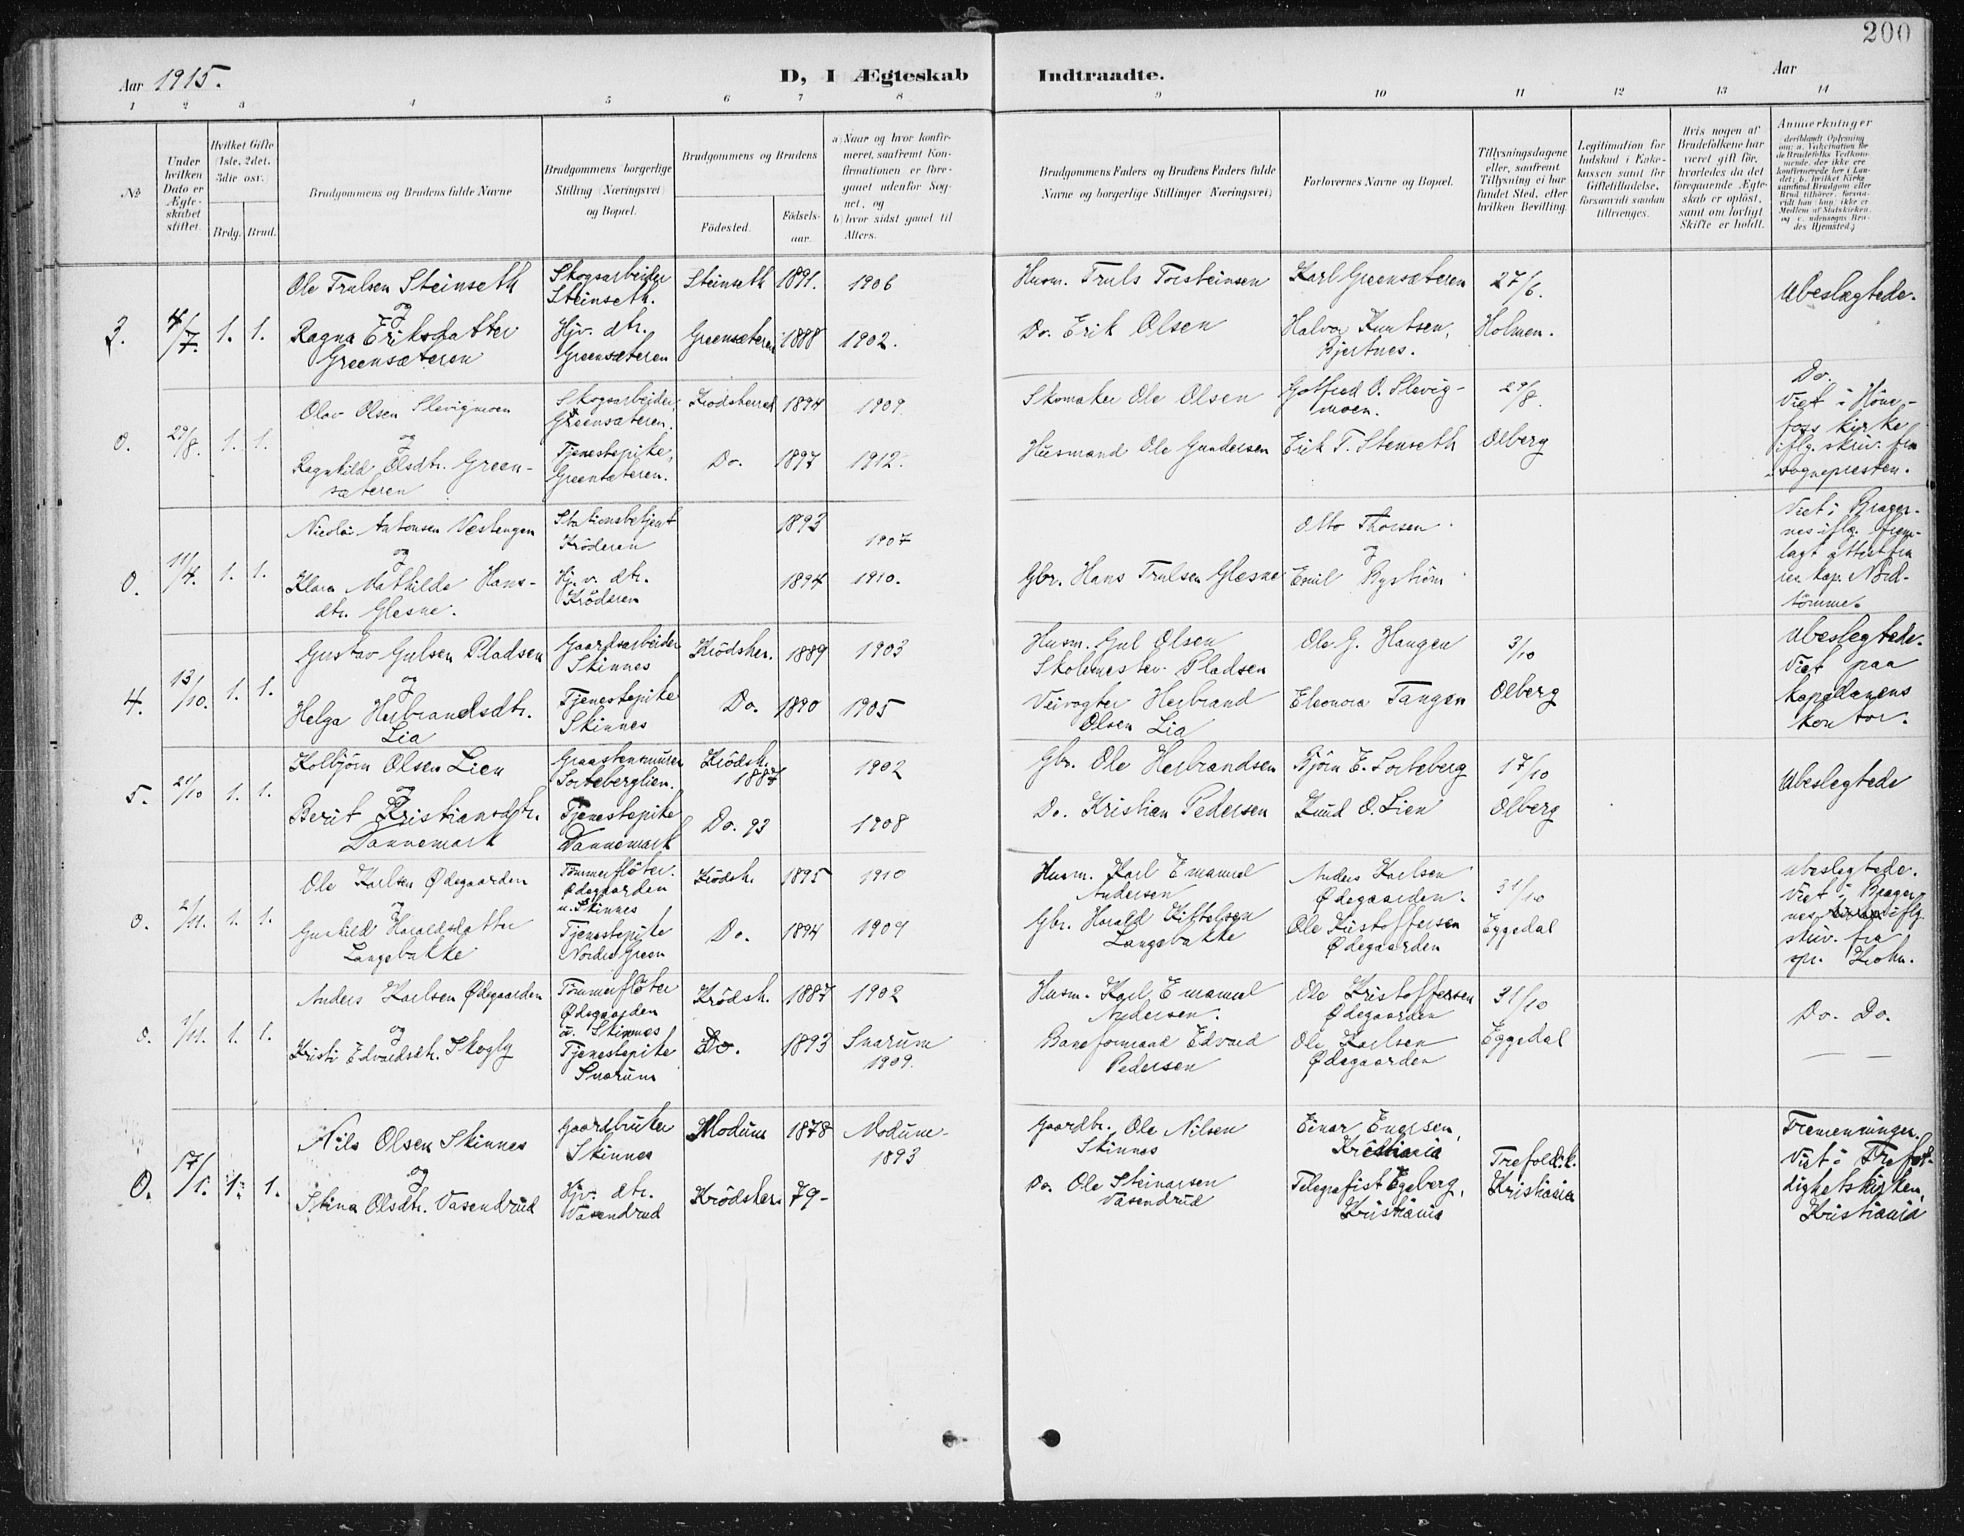 200
Aar 1915.
D, I Ægteskab
Indtraadte.
Aar
1 2 3 4 5 6 7 8 9 10 11 12 13 14
№
Under
hvilken
Dato er
Ægte-
skabet
stiftet.
Hvilket Gifte
(1ste, 2det,
3die osv.
Brdg. Brud.
Brudgommens og Brudens fulde Navne
Brudgommens borgerlige
Stilling (Næringsvei)
og Bopæl.
Brudgommens og Brudens
Fødested.
Fødsels-
aar.
a) Naar og hvor konfir-
meret, saafremt Kon-
firmationen er fore-
gaaet udenfor Sog-
net, og
b) hvor sidst gaaet til
Alters.
Brudgommens Faders og Brudens Faders fulde
Navne og borgerlige Stillinger (Næringsvei)
Forlovernes Navne og Bopæl.
Tillysningsdagene
eller, saafremt
Tillysning ei har
fundet Sted, efter
hvilken Bevilling.
Legitimation for
Indskud i Enke-
kassen samt for
Giftetilladelse,
forsaavidt saadan
tiltrænges.
Hvis nogen af
Brudefolkene har
været gift før,
hvorledes da det
foregaaende Ægte-
skab er opløst,
samt om lovligt
Skifte er holdt.
Anmerkninger
(deriblandt Oplysning
om: a. Vakcination for
de Brudefolks Vedkom-
mende, der ikke ere
konfirmerede her i Lan-
det; b. hvilket Kirke-
samfund Brudgom eller
Brud tilhører, forsaa-
vidt han (hun) ikke er
Medlem af Statskirken,
og c. udensogns Bru-
des Hjemsted.)
3. 4/7. 1. 1.
Ole Trulsen Steinseth
og
Ragna Eriksdatter
Greensæteren
Skogsarbeider
Steinseth.
Hjv. dtr.
Greensæteren
Steinseth 1891. 1906
Greensæteren 1888 1902.
Husm. Truls Torsteinsen
Do. Erik Olsen
Karl Greensæteren
Halvor Knutsen,
Bjertnes.
27/6.
Holmen.
Ubeslægtede.
0. 29/8. 1. 1.
Olav Olsen Slevigmoen
og
Ragnhild Olsdtr. Green-
sæteren
Skogsarbeider,
Greensæteren.
Tjenestepike,
Greensæteren.
Krødsherred 1894 1909.
Do. 1897 1912.
Skomaker Ole Olsen
Husmand Ole Gundersen
Gotfred O. Slevig-
moen.
Erik T. Stenseth
29/8.
Olberg
Do.
Viet i Høne-
foss kirke
iflg. skriv. fra
sognepresten.
0. 11/4. 1. 1.
Nicolai Antonsen Vestengen
og
Klara Mathilde Hans-
dtr. Glesne.
Stationsbetjent
Krøderen
Hj. v. dtr.
Krøderen
1893 1907
1894 1910.
Gbr. Hans Trulsen Glesne
Otto Thorsen
og
Emil Bystrøm
Viet i Brager-
nes iflg. frem-
lagt attest fra
res. kap. Nord-
tömme.
4. 13/10. 1. 1.
Gustav Gulsen Pladsen
og
Helga Herbrandsdtr.
Lia
Gaardsarbeider
Skinnes
Tjenestepike
Skinnes
Krödsher. 1889 1903
Do. 1890 1905
Husm. Gul Olsen
Pladsen
Veivogter Herbrand
Olsen Lia
Ole G. Haugen
Eleonora Tangen
3/10
Olberg
Ubeslegtede.
Viet paa
kapellanens
kontor.
5. 21/10 1. 1.
Kolbjörn Olsen Lien
og
Berit Kristiansdtr.
Dannemark
Graastensmurer
Sorteberglien.
Tjenestepike
Dannemark
Krödsh.
1887 1902
Do. 93 1908
Gbr. Ole Herbrandsen
Do. Kristian Pedersen
Björn E. Sorteberg
Knud O. Lien
17/10
Olberg
Ubeslegtede
0. 2/11. 1. 1.
Ole Karlsen Ødegaarden
og
Gunhild Haraldsdatter
Langebakke
Tömmerflöter.
Ødegaarden
u. Skinnes
Tjenestepike
Nordre Green
Krödsh. 1895 1910
Do. 1894 1909
Husm. Karl Emanuel
Andersen
Gbr. Harald Kittelsen
Langebakke
Anders Karlsen
Ødegaarden.
Ole Kristoffersen
Ødegaarden
31/10
Eggedal
Ubeslegtede.
Viet i Brager-
nes iflg.
skriv. fra
spr. Krohn.
0. 1/11. 1. 1.
Anders Karlsen Ødegaarden
og
Kristi Edvardsdtr. Skogly
Tömmerflöter
Ødegaarden
u. Skinnes
Tjenestepike
Snarum
Krödsh. 1887 1902
Do. 1893 Snarum
1909.
Husm. Karl Emanuel
Andersen.
Baneformand Edvard
Pedersen
Ole Kristoffersen
Ødegaarden
Ole Karlsen
Ødegaarden
31/10
Eggedal
Do. Do.
0. 17/1. 1. 1.
Nils Olsen Skinnes
og
Stina Olsdtr. Vasendrud
Gaardbruker
Skinnes
Hjv. dtr.
Vasendrud
Modum 1878 Modum
1893
Krödsher. 79 -
Gaardbr. Ole Nilsen
Skinnes
Do. Ole Steinarsen
Vasendrud
Einar Engesen,
Kristiania
Telegrafist Egeberg,
Kristiania
Trefoldk.
Kristiania
Tremenninger.
Viet i Trefol-
dighetskirken,
Kristiania